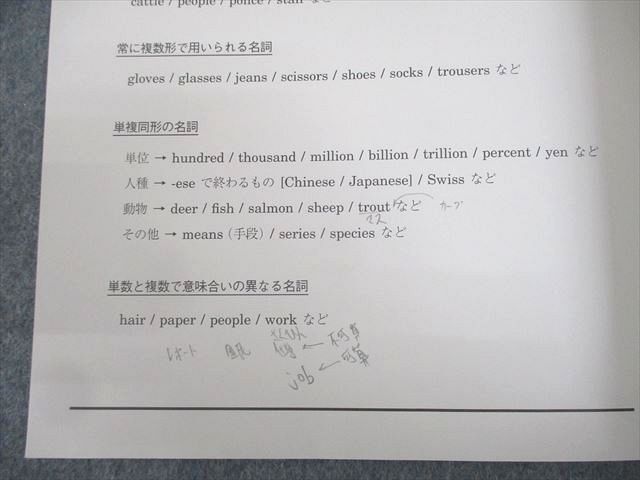 cattle / people / police / staff など
常に複数形で用いられる名詞
gloves / glasses / jeans / scissors / shoes / socks / trousers など
単複同形の名詞
単位 → hundred / thousand / million / billion / trillion / percent / yen など
人種 → -ese で終わるもの [Chinese / Japanese] / Swiss など
動物 → deer / fish / salmon / sheep / trout など
マス
その他 → means (手段) / series / species など
単数と複数で意味合いの異なる名詞
hair / paper / people / work など
さくひん
レポート ← 不可算
job ← 可算